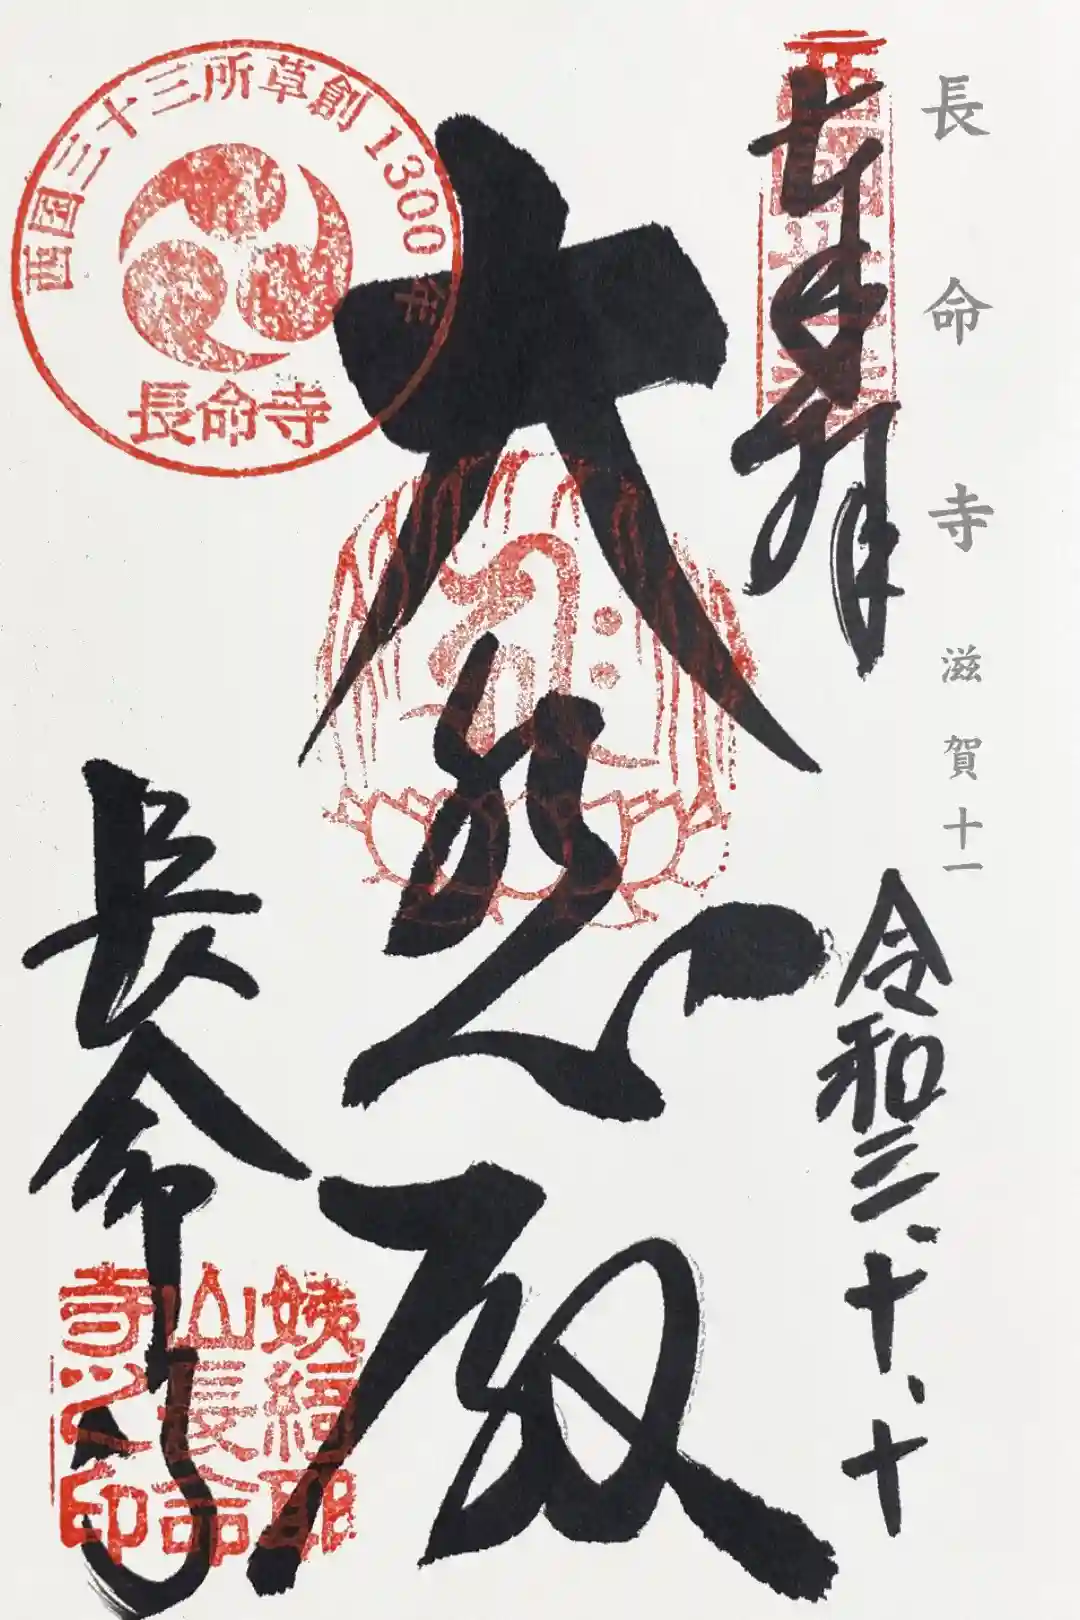 長命寺 滋賀十一
西国三十三所草創1300年
長命寺
奉拝
令和三、十、十
大悲殿
長命寺
姨綺耶
山長命
寺之印